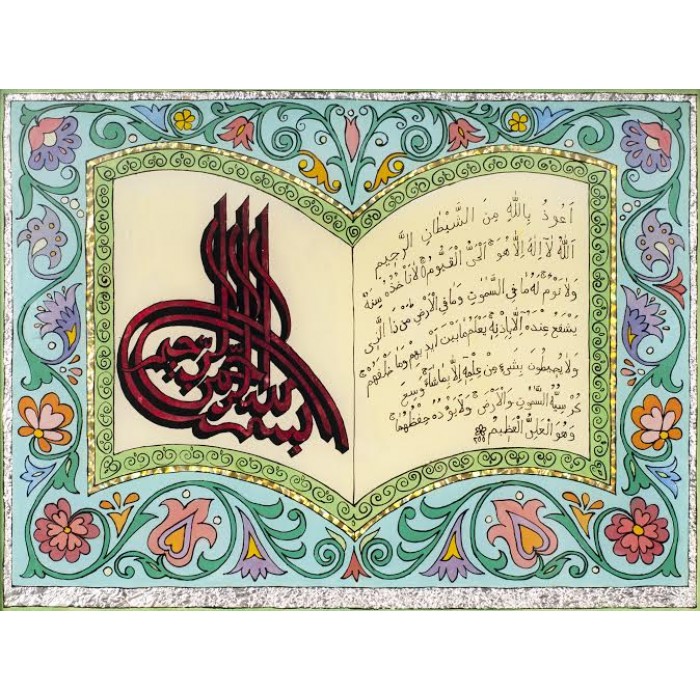 بسم الله الرحمن الرحيم
اَعُوذُ بِاللهِ مِنَ الشَّيْطَانِ الرَّجِيمِ
اَللهُ لَآ اِلٰهَ اِلَّا هُوَ اَلْحَيُّ الْقَيُّومُ لَا تَاْخُذُهُ سِنَةٌ
وَلَا نَوْمٌ لَهُ مَا فِي السَّمٰوٰتِ وَمَا فِي الْاَرْضِ مَنْ ذَا الَّذِى
يَشْفَعُ عِنْدَهُ اِلَّا بِاِذْنِهِ يَعْلَمُ مَا بَيْنَ اَيْدِيهِمْ وَمَا خَلْفَهُمْ
وَلَا يُحِيطُونَ بِشَيْءٍ مِنْ عِلْمِهِ اِلَّا بِمَا شَاءَ وَسِعَ
كُرْسِيُّهُ السَّمٰوٰتِ وَالْاَرْضَ وَلَا يَؤُدُهُ حِفْظُهُمَا
وَهُوَ الْعَلِيُّ الْعَظِيمُ